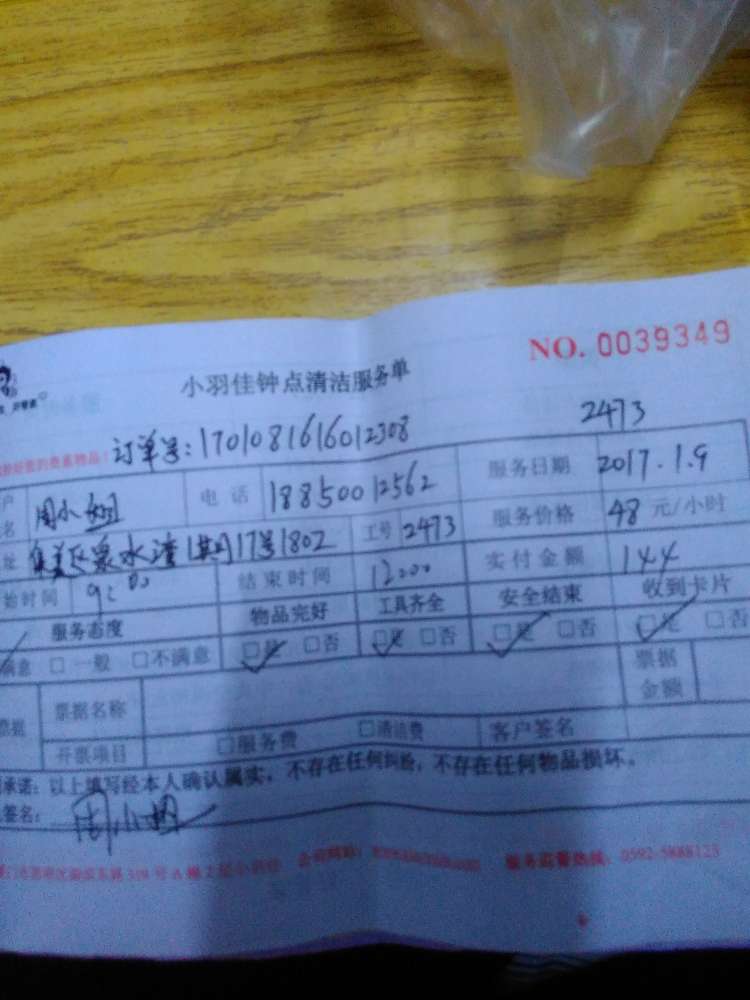 NO. 0039349
小羽佳钟点清洁服务单
2473
订单号:1701081616012308
周小姐 电话 18850012562 服务日期 2017.1.9
集美区泉水湾1期17号1802 工号 2473 服务价格 48 元/小时
始时间 9:00 结束时间 12:00 实付金额 144
服务态度 物品完好 工具齐全 安全结束 收到卡片
满意 □一般 □不满意 □是 □否 □是 □否 □是 □否 □是 □否
票据 票据名称 票据金额
开票项目 □服务费 □清洁费 客户签名
承诺:以上填写经本人确认属实,不存在任何纠纷,不存在任何物品损坏。
签名: 周小姐
服务监督热线:0592-5888123